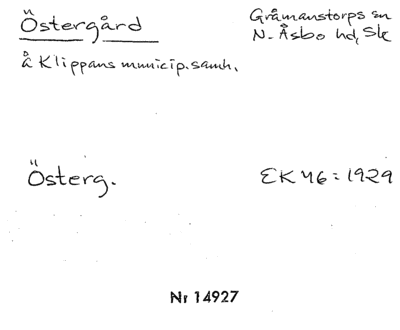 Östergård
Gråmanstorps sn
N. Åsbo hd, Sk
å Klippans municip.samh.
Österg.
EK 46 = 1929
Nr 14927